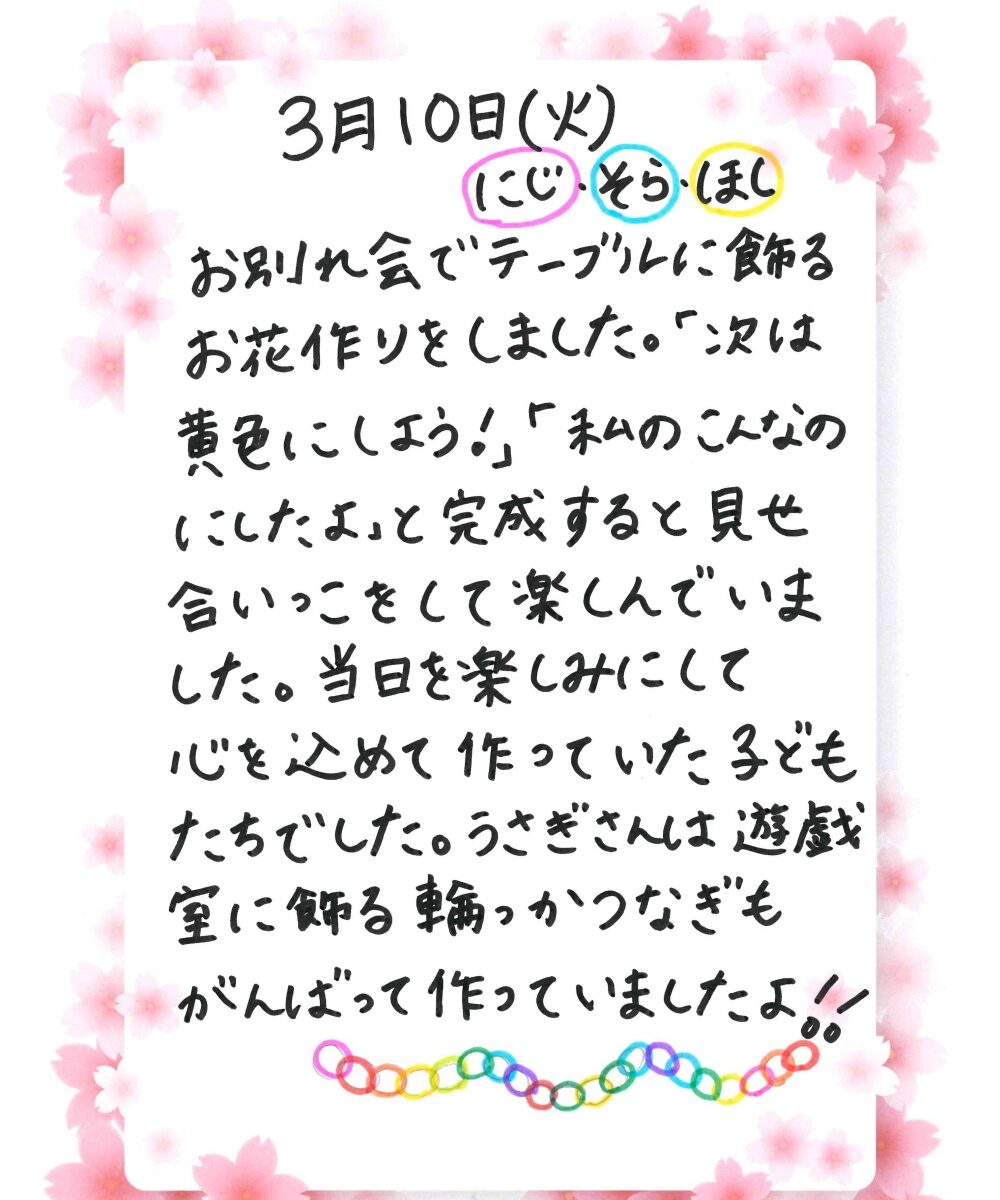 3月10日(火)
にじ・そら・ほし
お別れ会でテーブルに飾る
お花作りをしました。「次は
黄色にしよう!」「私のこんなの
にしたよ」と完成すると見せ
合いっこをして楽しんでいま
した。当日を楽しみにして
心を込めて作っていた子ども
たちでした。うさぎさんは遊戯
室に飾る輪っかつなぎも
がんばって作っていましたよ!!